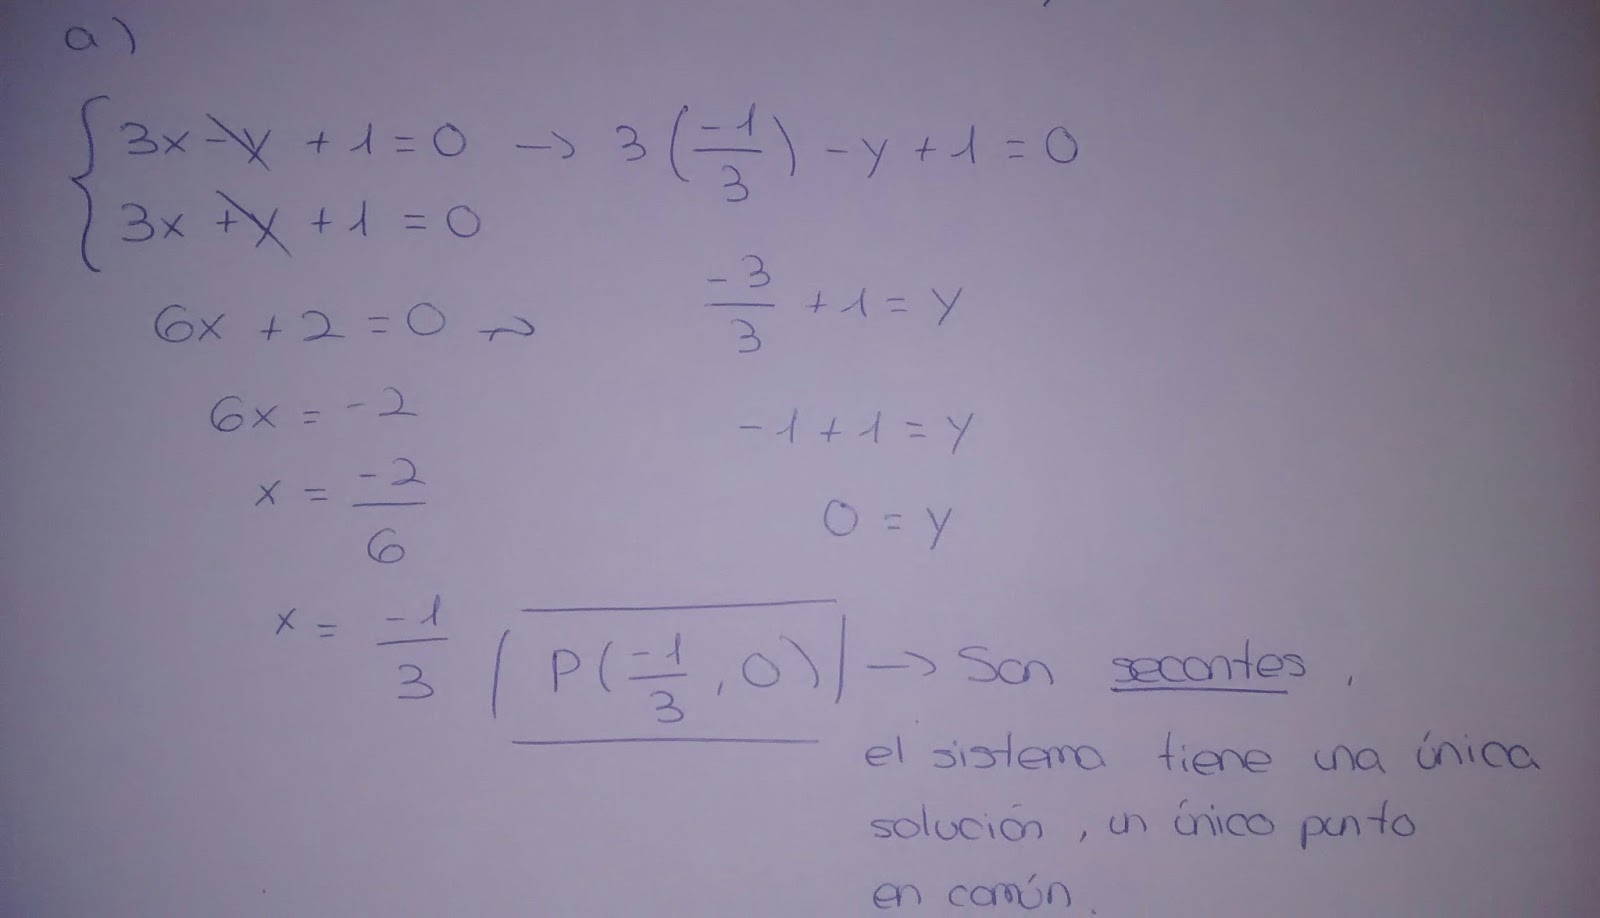 a)
3x - y + 1 = 0 → 3(-1/3) - y + 1 = 0
3x + y + 1 = 0
-3/3 + 1 = y
6x + 2 = 0 ⤳
6x = -2
-1 + 1 = y
x = -2/6
0 = y
x = -1/3
P(-1/3, 0) → Son secantes,
el sistema tiene una única
solución, un único punto
en común.